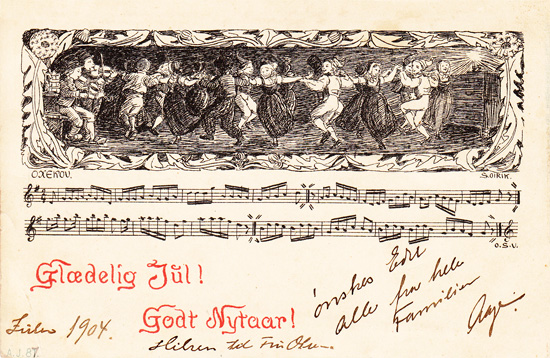 OXENOV.
S. OIRIK.
O.S.V.
Glædelig Jul!
Godt Nytaar!
ønskes Edit
alle fra hele
Familien
Aage.
Julen 1904.
Hilsen til Fru Olsen.
A.J. 87.